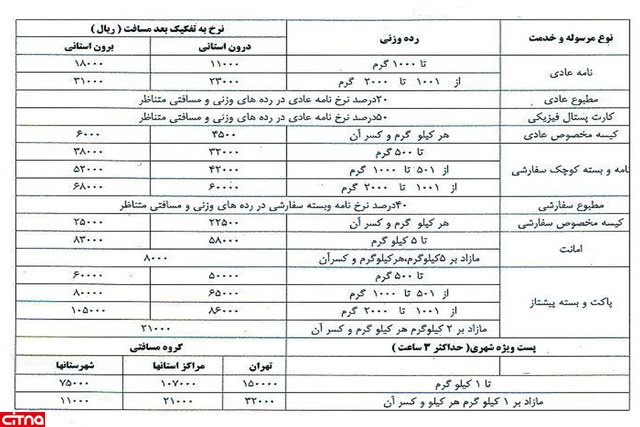 نوع مرسوله و خدمت رده وزنی نرخ به تفکیک بعد مسافت ( ریال )
درون استانی برون استانی
نامه عادی تا ۱۰۰۰ گرم ۱۱۰۰۰ ۱۸۰۰۰
از ۱۰۰۱ تا ۲۰۰۰ گرم ۲۳۰۰۰ ۳۱۰۰۰
مطبوع عادی ۲۰درصد نرخ نامه عادی در رده های وزنی و مسافتی متناظر
کارت پستال فیزیکی ۵۰درصد نرخ نامه عادی در رده های وزنی و مسافتی متناظر
کیسه مخصوص عادی هر کیلو گرم و کسر آن ۴۵۰۰ ۶۰۰۰
نامه و بسته کوچک سفارشی تا ۵۰۰ گرم ۳۲۰۰۰ ۳۸۰۰۰
از ۵۰۱ تا ۱۰۰۰ گرم ۴۲۰۰۰ ۵۲۰۰۰
از ۱۰۰۱ تا ۲۰۰۰ گرم ۶۰۰۰۰ ۶۸۰۰۰
مطبوع سفارشی ۴۰درصد نرخ نامه وبسته سفارشی در رده های وزنی و مسافتی متناظر
کیسه مخصوص سفارشی هر کیلو گرم و کسر آن ۲۲۵۰۰ ۲۵۰۰۰
امانت تا ۵ کیلو گرم ۵۸۰۰۰ ۸۳۰۰۰
مازاد بر ۵کیلوگرم،هرکیلوگرم و کسرآن ۸۰۰۰
پاکت و بسته پیشتاز تا ۵۰۰ گرم ۵۰۰۰۰ ۶۰۰۰۰
از ۵۰۱ تا ۱۰۰۰ گرم ۶۵۰۰۰ ۸۰۰۰۰
از ۱۰۰۱ تا ۲۰۰۰ گرم ۸۶۰۰۰ ۱۰۵۰۰۰
مازاد بر ۲ کیلوگرم هر کیلو گرم و کسر آن ۲۱۰۰۰
پست ویژه شهری( حداکثر ۳ ساعت ) گروه مسافتی
تهران مراکز استانها شهرستانها
تا ۱ کیلو گرم ۱۵۰۰۰۰ ۱۰۷۰۰۰ ۷۵۰۰۰
مازاد بر ۱ کیلو گرم هر کیلو و کسر آن ۳۲۰۰۰ ۲۱۰۰۰ ۱۱۰۰۰
CITNA